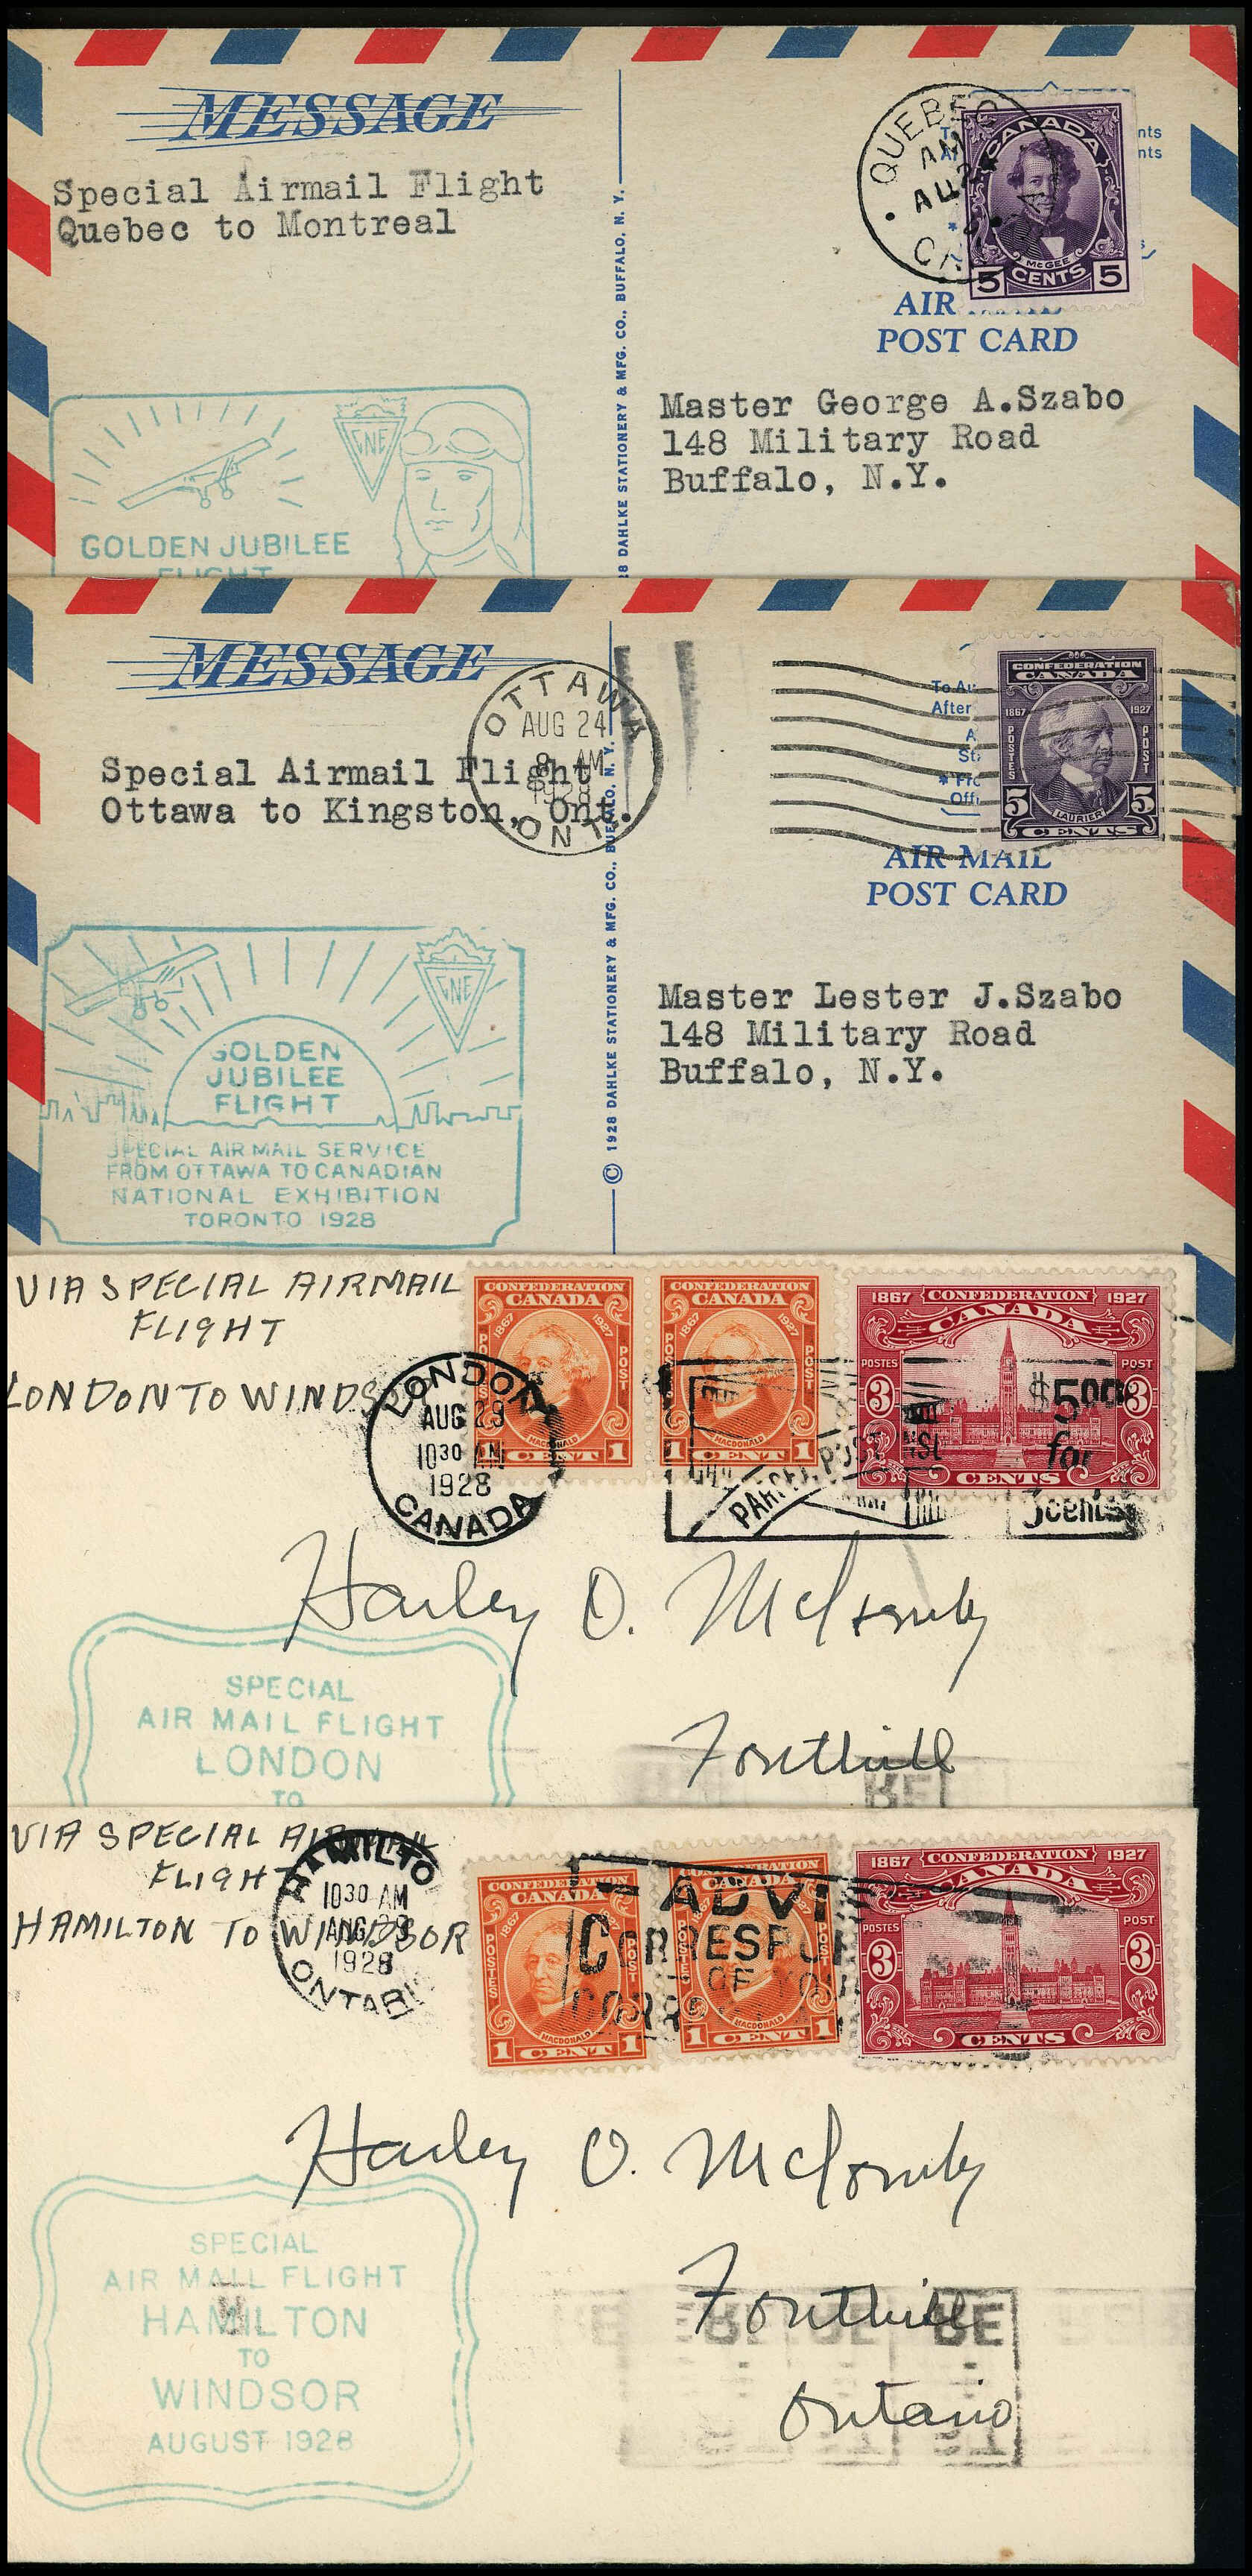 MESSAGE
Special Airmail Flight
Quebec to Montreal
QUEBEC
AM
AU 24
CANADA
McGEE
5 CENTS 5
AIR
POST CARD
Master George A.Szabo
148 Military Road
Buffalo, N.Y.
28 DAHLKE STATIONERY & MFG. CO., BUFFALO, N. Y.
CNE
GOLDEN JUBILEE
FLIGHT
MESSAGE
Special Airmail Flight
Ottawa to Kingston, Ont.
OTTAWA
AUG 24
8 AM
1928
ONT.
To Au
After
CONFEDERATION
CANADA
1867 1927
POSTES POST
5 LAURIER 5
CENTS
AIR MAIL
POST CARD
Master Lester J.Szabo
148 Military Road
Buffalo, N.Y.
© 1928 DAHLKE STATIONERY & MFG. CO., BUFFALO, N. Y.
CNE
GOLDEN
JUBILEE
FLIGHT
SPECIAL AIR MAIL SERVICE
FROM OTTAWA TO CANADIAN
NATIONAL EXHIBITION
TORONTO 1928
VIA SPECIAL AIRMAIL
FLIGHT
LONDON TO WINDS
LONDON
AUG 29
10 30 AM
1928
CANADA
CONFEDERATION
CANADA
1867 1927
POST
MACDONALD
1 CENT 1
CONFEDERATION
CANADA
1867 1927
POST
MACDONALD
1 CENT 1
1867 CONFEDERATION 1927
CANADA
POSTES POST
3 3
CENTS
PARCEL POST
$5000
for
3cents
Harley O. McComb
Fonthill
SPECIAL
AIR MAIL FLIGHT
LONDON
TO
VIA SPECIAL AIRMAIL
FLIGHT
HAMILTON TO WINDSOR
HAMILTO
10 30 AM
AUG 29
1928
ONTARI
CONFEDERATION
CANADA
1867
POSTES
MACDONALD
1 CENT 1
CANADA
MACDONALD
1 CENT 1
ADVI
CORRESPON
OF YOU
CORR
1867 CONFEDERATION 1927
CANADA
POSTES POST
3 3
CENTS
Harley O. McComb
Fonthill
Ontario
BE
SPECIAL
AIR MAIL FLIGHT
HAMILTON
TO
WINDSOR
AUGUST 1928